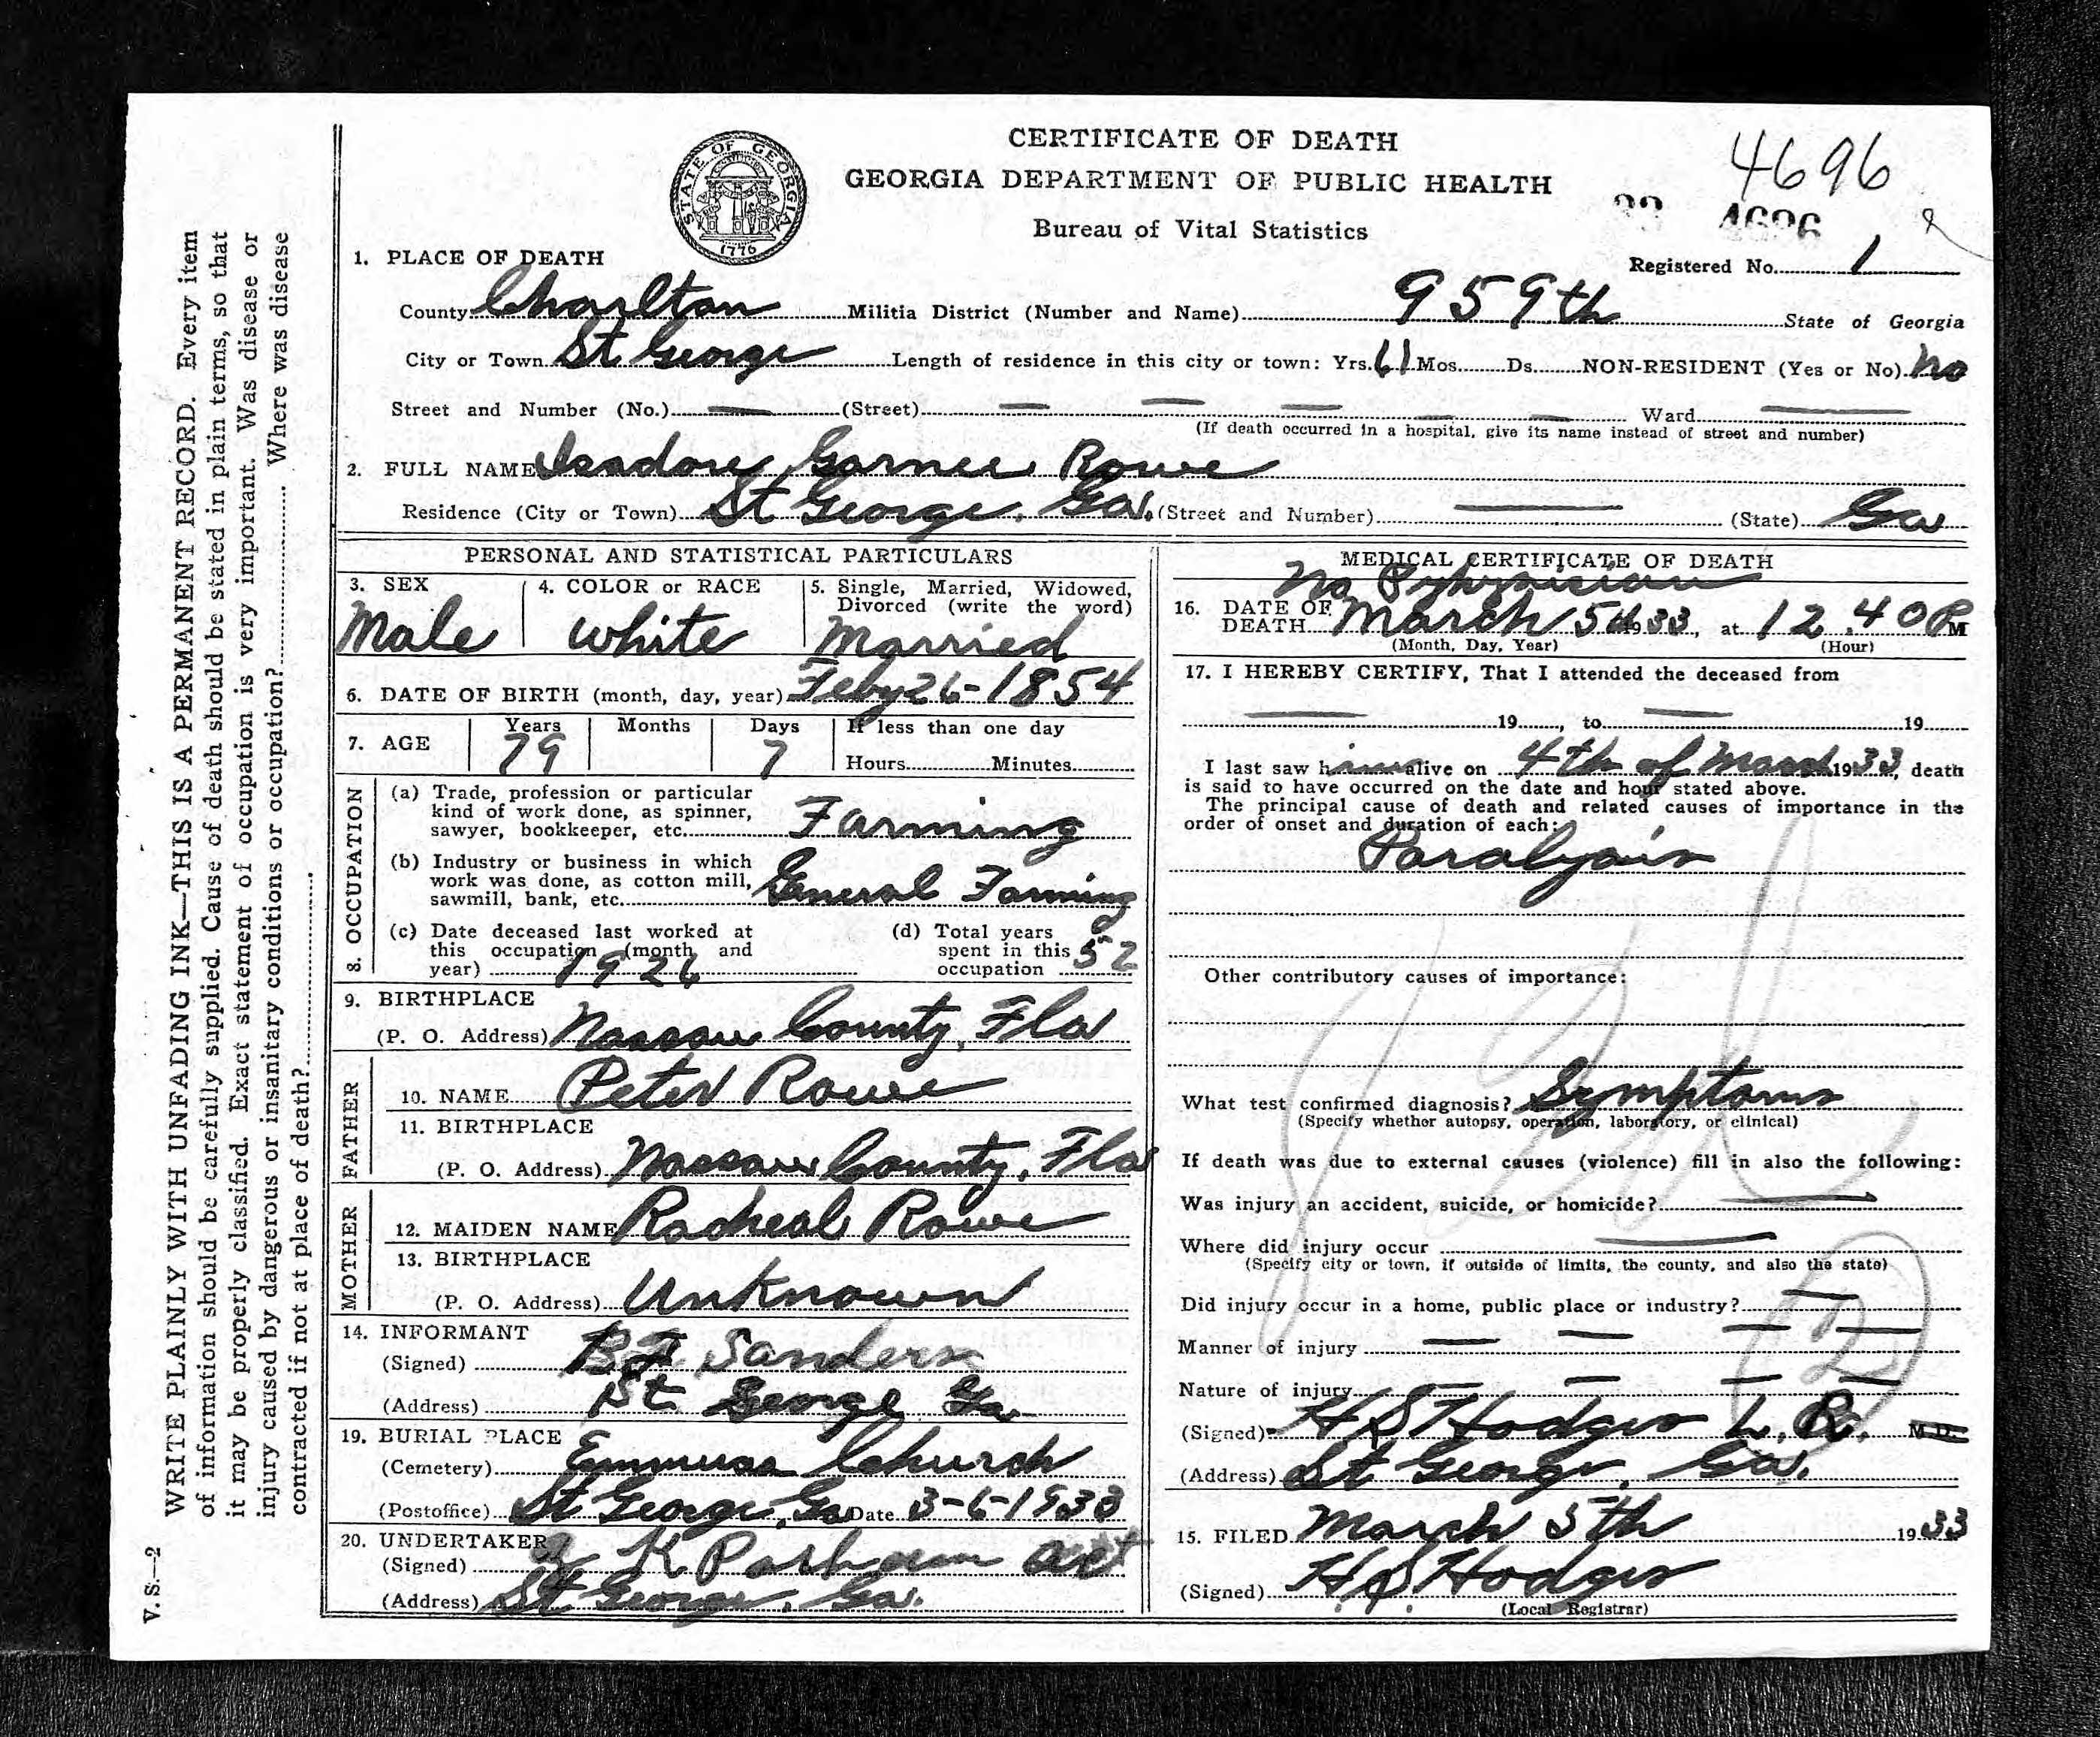 CERTIFICATE OF DEATH
GEORGIA DEPARTMENT OF PUBLIC HEALTH
Bureau of Vital Statistics
STATE OF GEORGIA
CONSTITUTION
1776
4696
33 4696
Registered No. 1
1. PLACE OF DEATH
County Charlton Militia District (Number and Name) 959th State of Georgia
City or Town St George Length of residence in this city or town: Yrs. 61 Mos. Ds. NON-RESIDENT (Yes or No) no
Street and Number (No.) — (Street) — — — — — Ward —
(If death occurred in a hospital, give its name instead of street and number)
2. FULL NAME Isadore Garnee Rowe
Residence (City or Town) St George, Ga. (Street and Number) — (State) Ga
PERSONAL AND STATISTICAL PARTICULARS
3. SEX 4. COLOR or RACE 5. Single, Married, Widowed, Divorced (write the word)
Male white Married
6. DATE OF BIRTH (month, day, year) Feby 26-1854
7. AGE Years 79 Months Days 7 If less than one day
Hours Minutes
8. OCCUPATION
(a) Trade, profession or particular
kind of work done, as spinner,
sawyer, bookkeeper, etc. Farming
(b) Industry or business in which
work was done, as cotton mill,
sawmill, bank, etc. General Farming
(c) Date deceased last worked at
this occupation (month and
year) 1926
(d) Total years
spent in this
occupation 52
9. BIRTHPLACE
(P. O. Address) Nassau County, Fla
FATHER
10. NAME Peter Rowe
11. BIRTHPLACE
(P. O. Address) Nassau County, Fla
MOTHER
12. MAIDEN NAME Racheal Rowe
13. BIRTHPLACE
(P. O. Address) Unknown
14. INFORMANT
(Signed) Sanders
(Address) St George Ga
19. BURIAL PLACE
(Cemetery) Emmuas Church
(Postoffice) St George, Ga Date 3-6-1933
20. UNDERTAKER
(Signed) K Parham act
(Address) St George, Ga.
MEDICAL CERTIFICATE OF DEATH
No Pyhysician
16. DATE OF
DEATH March 5th 1933, at 12.40 P M
(Month, Day, Year) (Hour)
17. I HEREBY CERTIFY, That I attended the deceased from
— 19 , to — 19
I last saw him alive on 4th of March 1933, death
is said to have occurred on the date and hour stated above.
The principal cause of death and related causes of importance in the
order of onset and duration of each:
Paralysis
Other contributory causes of importance:
What test confirmed diagnosis? Symptoms
(Specify whether autopsy, operation, laboratory, or clinical)
If death was due to external causes (violence) fill in also the following:
Was injury an accident, suicide, or homicide? —
Where did injury occur —
(Specify city or town, if outside of limits, the county, and also the state)
Did injury occur in a home, public place or industry? —
Manner of injury — — — —
Nature of injury — — — —
(Signed) H S Hodges L. R. M.D.
(Address) St George, Ga.
15. FILED March 5th 1933
(Signed) H. S. Hodges
(Local Registrar)
82
2
WRITE PLAINLY WITH UNFADING INK—THIS IS A PERMANENT RECORD. Every item
of information should be carefully supplied. Cause of death should be stated in plain terms, so that
it may be properly classified. Exact statement of occupation is very important. Was disease or
injury caused by dangerous or insanitary conditions or occupation? Where was disease
contracted if not at place of death?
V. S.—2